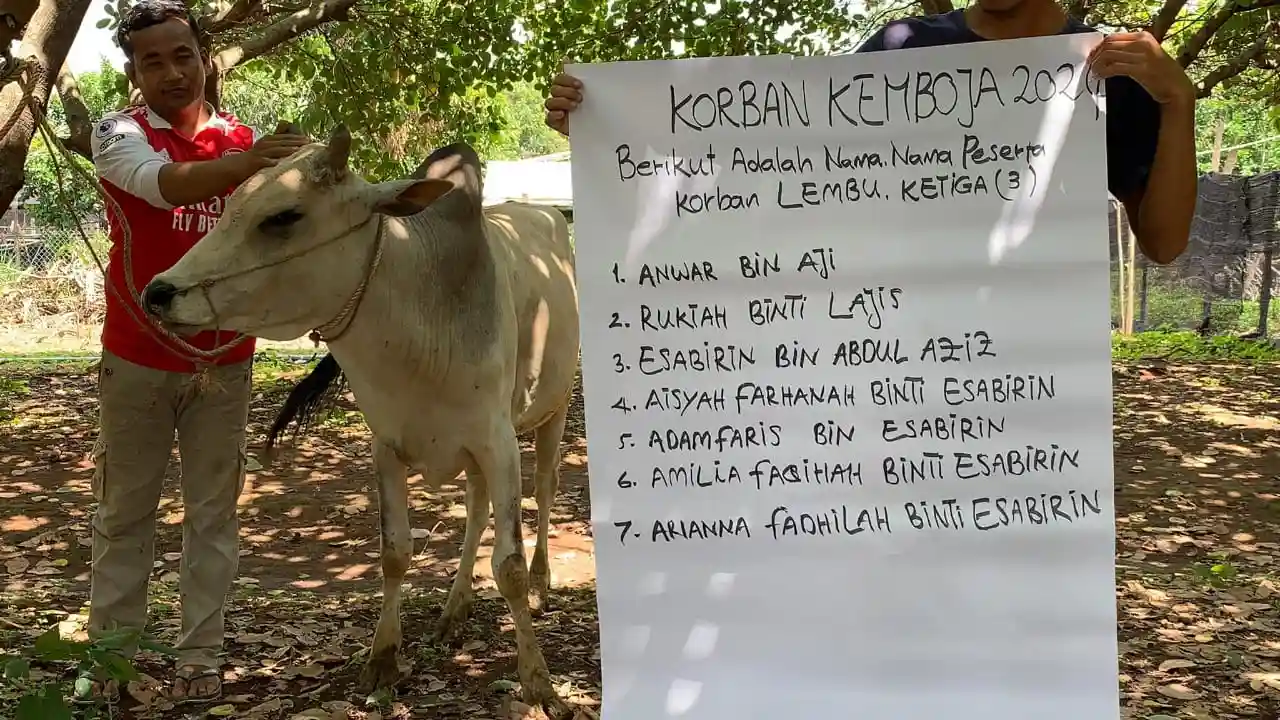 KORBAN KEMBOJA 2024
Berikut Adalah Nama. Nama Peserta
korban LEMBU. KETIGA (3)
1. ANWAR BIN AJI
2. RUKIAH BINTI LAJIS
3. ESABIRIN BIN ABDUL AZIZ
4. AISYAH FARHANAH BINTI ESABIRIN
5. ADAM FARIS BIN ESABIRIN
6. AMILIA FAQIHAH BINTI ESABIRIN
7. ARIANNA FADHILAH BINTI ESABIRIN
FLY BE